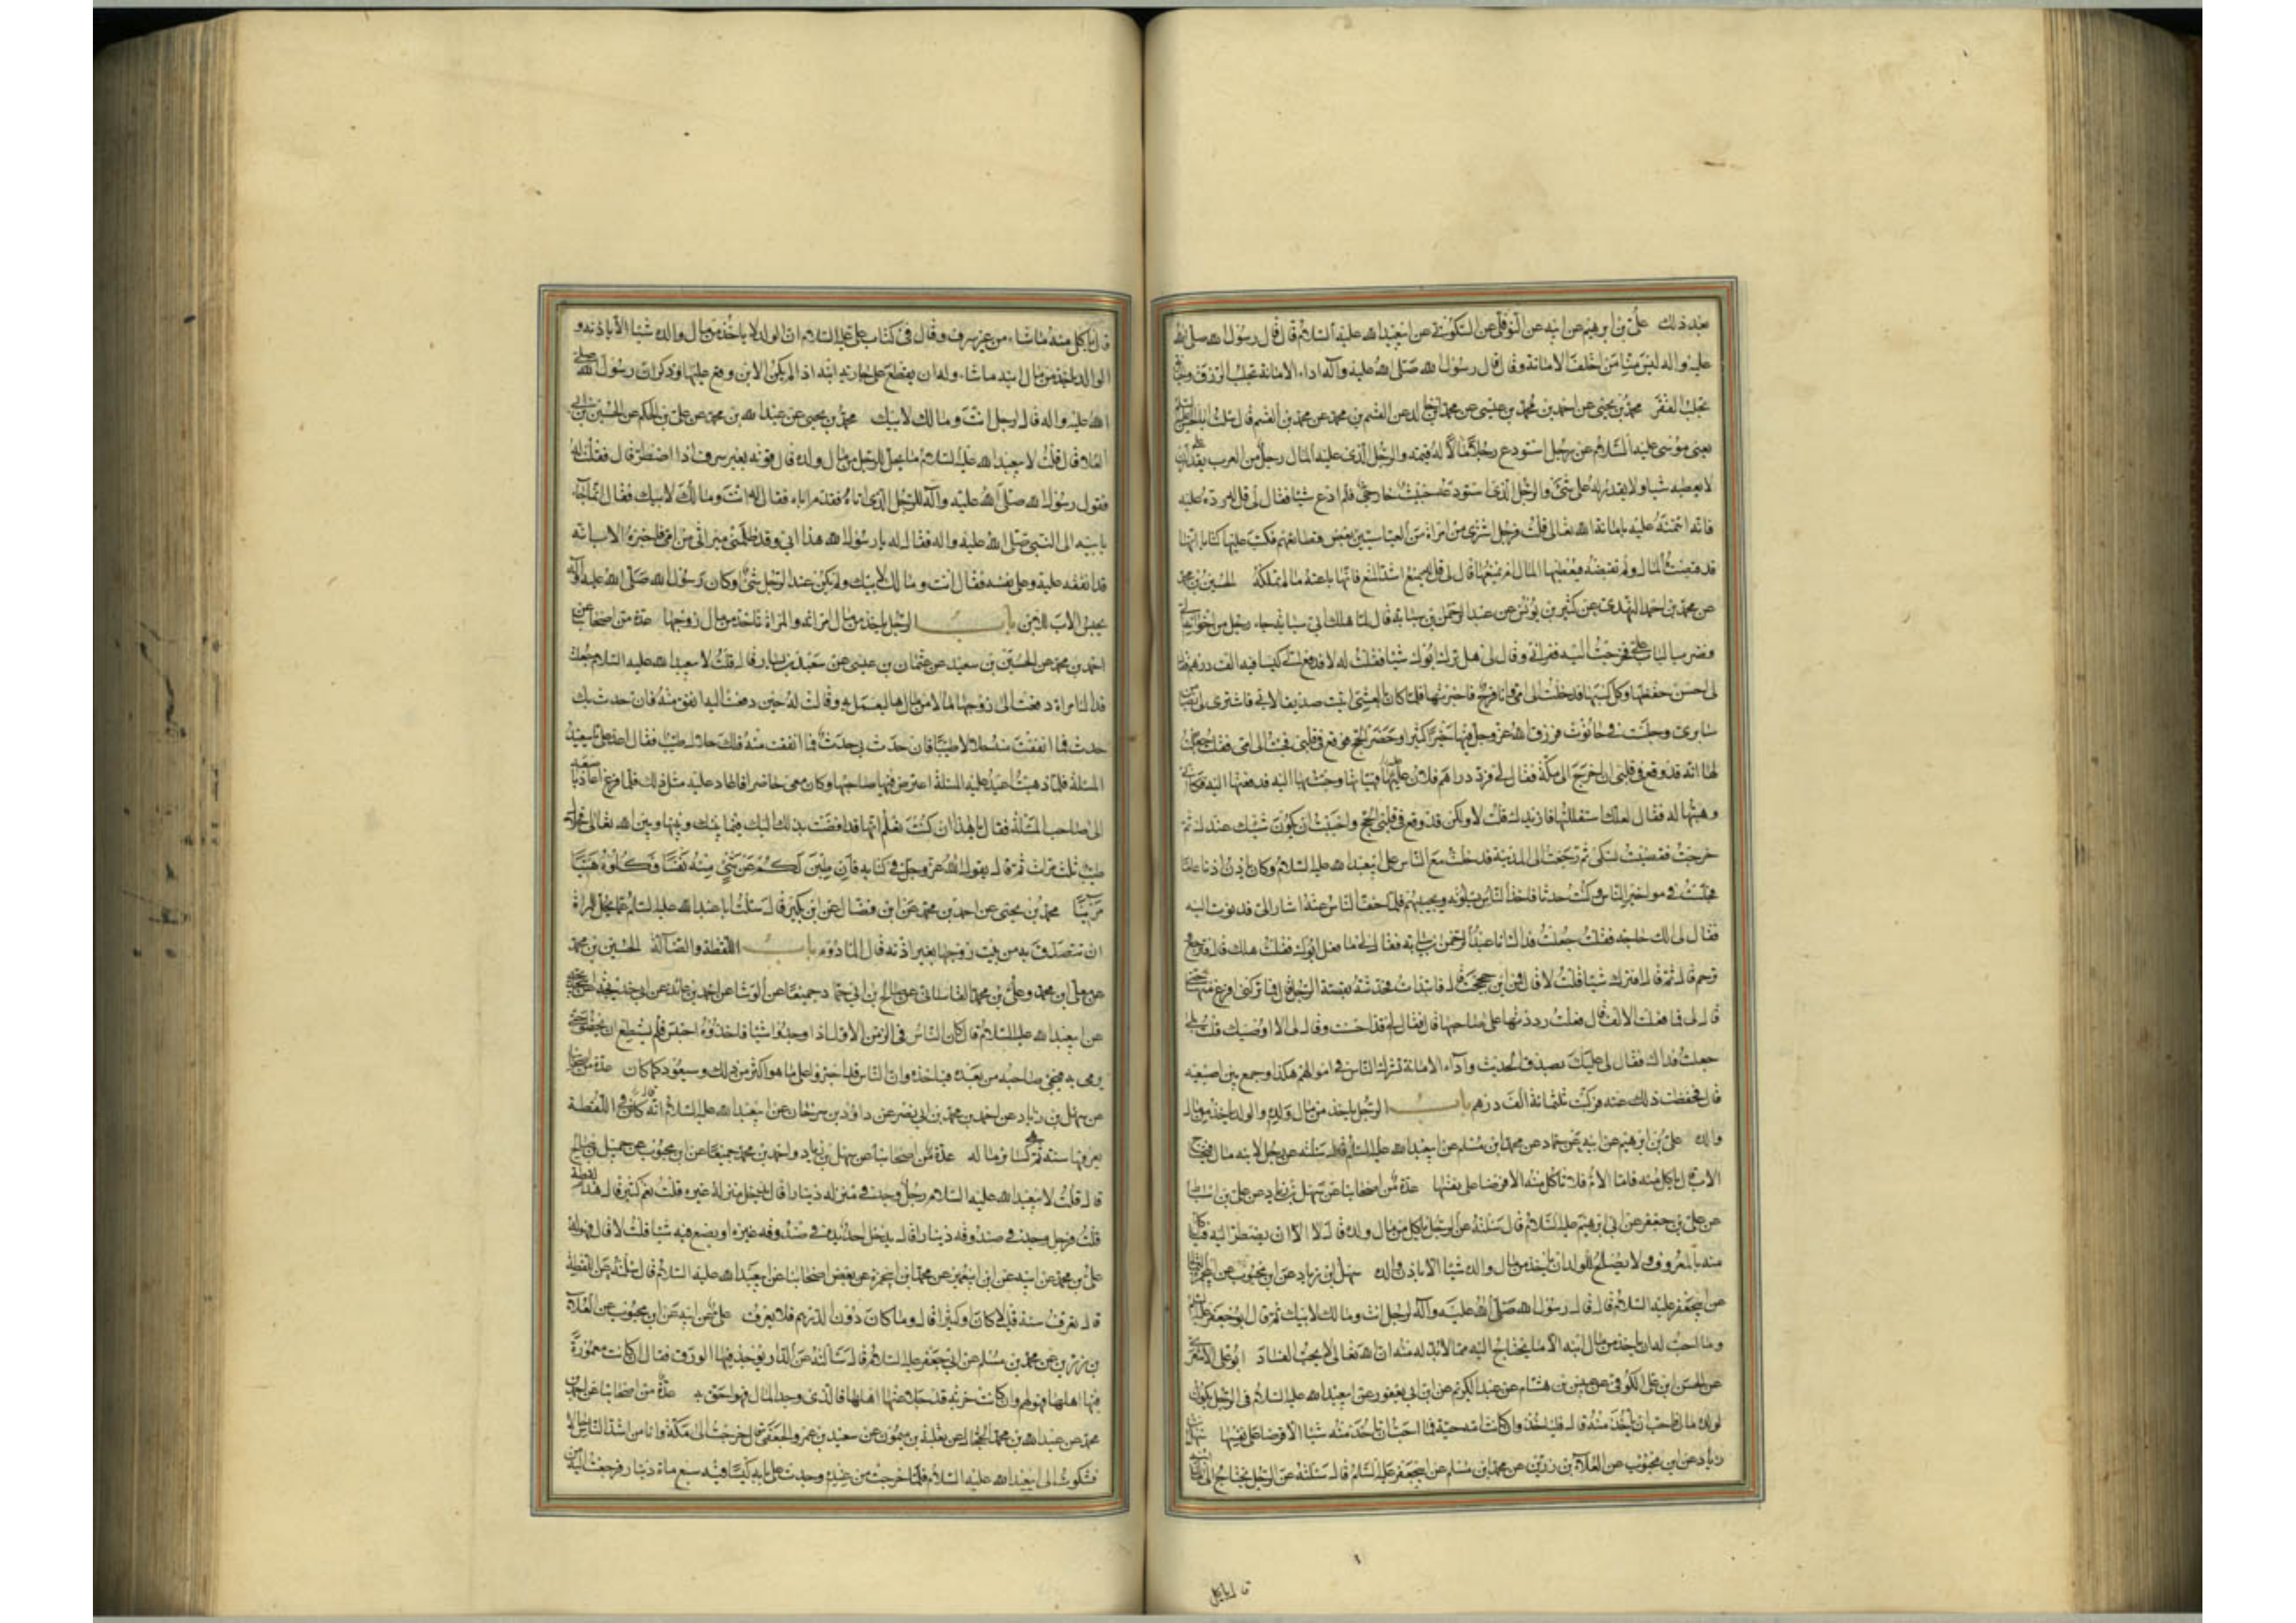 بعد ذلك علي بن ابرهيم عن ابيه عن النوفلي عن السكوني عن ابيعبدالله عليه السلام قال قال رسول الله صلى الله
عليه واله ليس منا من اخلف الامانة وقال قال رسول الله صلى الله عليه وآله اداء الامانة تجلب الرزق
تجلب الفقر محمد بن يحيى عن احمد بن محمد بن عيسى عن محمد بن خالد عن القسم بن محمد عن محمد بن القسم قال سئلت
يعنى موسى عليه السلام عن رجل استودع رجلا مالا له قيمة والرجل الذى عليه المال رجل من العرب يقدر ان
لا يعطيه شيا ولا يقدر له على شئ والرجل الذى استودعه خبيث خارجي فلم ادع شيا فقال لى قل له رده عليه
فانه ائتمنه عليه بامانة الله تعالى قلت فرجل اشترى من امراة من العباسيين بعض قطايعهم فكتب عليها كتابا انها
قد قبضت المال ولم تقبضه فيعطيها المال ام يمنعها قال لى قل له يمنع اشد المنع فانها باعته ما لم تملكه الحسين بن محمد
عن محمد بن احمد النهدى عن كثير بن يونس عن عبد الرحمن بن سيابة قال لما هلك ابى سيابة جاء رجل من اخوانه
وضرب الباب على فخرجت اليه فعزانى وقال لى هل ترك ابوك شيا فقلت له لا فدفع الى كيسا فيه الف درهم
لى احسن حفظها وكل كسبها فدخلت الى امى وانا فرح فاخبرتها فلما كان بالعشى اتيت صديقا لابى فاشترى لى
سابرى وجلست فى حانوت فرزق الله عز وجل فيها خيرا كثيرا وحضر الحج فوقع فى قلبى فجئت الى امى فقلت
لها انه قد وقع فى قلبى ان اخرج الى مكة فقال لى فرد دراهم فلان عليها فهيأتها وجئت بها اليه فدفعتها اليه
وهبتها له فقال لعلك استقللتها فازيدك قلت لا ولكن قد وقع فى قلبى الحج واحببت ان يكون شيئك عندك ثم
خرجت فقضيت نسكى ثم رجعت الى المدينة فدخلت مع الناس على ابيعبدالله عليه السلام وكان يأذن اذنا عاما
فجلست فى مواخير الناس وكنت حدثا فاخذ الناس يسئلونه ويجيبهم فلما خف الناس عنه اشار الى فدنوت اليه
فقال لى الك حاجة فقلت جعلت فداك انا عبد الرحمن بن سيابة فقال لى ما فعل ابوك فقلت هلك قال
ترحم قال ثم قال افترك شيا قلت لا قال فمن اين حججت قال فابتدات فحدثته بقصة الرجل قال فما تركنى افرغ منها
قال لى فما فعلت الالف قال قلت رددتها على صاحبها قال فقال لى قد احسنت وقال لى الا اوصيك قلت بلى
جعلت فداك فقال لى عليك بصدق الحديث وآداء الامانة تشرك الناس فى اموالهم هكذا وجمع بين اصبعيه
قال فحفظت ذلك عنه فزكيت ثلثمائة الف درهم باب الرجل ياخذ من مال ولده والولد ياخذ من مال
والده علي بن ابرهيم عن ابيه عن حماد عن محمد بن مسلم عن ابيعبدالله عليه السلام قال سئلته عن رجل لابنه مال فيحتاج
الاب قال ياكل منه فاما الام فلا تاكل منه الا قرضا على نفسها عدة من اصحابنا عن سهل بن زياد عن على بن اسباط
عن على بن جعفر عن ابى ابرهيم عليه السلام قال سئلته عن الرجل ياكل من مال ولده قال لا الا ان يضطر اليه فياكل
منه بالمعروف ولا يصلح للولد ان ياخذ من مال والده شيا الا باذن والده سهل بن زياد عن ابن محبوب عن
عن ابيجعفر عليه السلام قال قال رسول الله صلى الله عليه وآله لرجل انت ومالك لابيك ثم قال ابو جعفر
وما احب له ان ياخذ من مال ابنه الا ما يحتاج اليه مما لابد له منه ان الله تعالى لا يحب الفساد ابو على الاشعرى
عن الحسن بن على الكوفى عن عبيس بن هشام عن عبد الكريم عن ابن ابى يعفور عن ابيعبدالله عليه السلام فى الرجل يكون
لولده مال فاحب ان ياخذ منه قال فلياخذ وان كانت امه حية فما احب ان تاخذ منه شيا الا قرضا على نفسها سهل بن
زياد عن ابن محبوب عن العلاء بن رزين عن محمد بن مسلم عن ابيجعفر عليه السلام قال سئلته عن الرجل يحتاج الى مال
قال ياكل
قال ياكل منه ما شاء من غير سرف وقال فى كتاب على عليه السلام ان الولد لا ياخذ من مال والده شيا الا باذنه و
الوالد ياخذ من مال ابنه ما شاء وله ان يقع على جارية ابنه اذا لم يكن الابن وقع عليها وذكر ان رسول الله صلى
الله عليه واله قال لرجل انت ومالك لابيك محمد بن يحيى عن عبدالله بن محمد عن على بن الحكم عن الحسين بن ابى
العلا قال قلت لابيعبدالله عليه السلام ما يحل للرجل من مال ولده قال قوته بغير سرف اذا اضطر قال فقلت له
فقول رسول الله صلى الله عليه وآله للرجل الذى اتاه فقدم اباه فقال له انت ومالك لابيك فقال انما جاء
بابيه الى النبى صلى الله عليه واله فقال له يا رسول الله هذا ابى وقد ظلمنى ميراثى من امى فاخبره الاب انه
قد انفقه عليه وعلى نفسه فقال انت ومالك لابيك ولم يكن عند الرجل شئ اوكان رسول الله صلى الله عليه وآله
يحبس الاب للابن باب الرجل ياخذ من مال امراته والمراة تاخذ من مال زوجها عدة من اصحابنا عن
احمد بن محمد عن الحسين بن سعيد عن عثمان بن عيسى عن سعيد بن يسار قال قلت لابيعبدالله عليه السلام جعلت
فداك امراة دفعت الى زوجها مالا من مالها ليعمل به وقالت له حين دفعت اليه انفق منه فان حدث بك
حدث فما انفقت منه حلالا طيبا فان حدث بى حدث فما انفقت منه فلك حلال طيب فقال اعد على يا سعيد
المسئلة فلما ذهبت اعيد عليه المسئلة اعترض فيها صاحبها وكان معى حاضرا فاعاد عليه مثل ذلك فلما فرغ
الى صاحب المسئلة فقال يا هذا ان كنت تعلم انها قد افضت بذلك اليك فيما بينك وبينها وبين الله تعالى فحلال
طيب ثلث مرات ثم قال يقول الله عز وجل فى كتابه فان طبن لكم عن شئ منه نفسا فكلوه هنيئا
مريئا محمد بن يحيى عن احمد بن محمد عن ابن فضال عن ابن بكير قال سئلت ابا عبدالله عليه السلام عما يحل للمراة
ان تتصدق به من بيت زوجها بغير اذنه قال المأدوم باب اللقطة والضآلة الحسين بن محمد
عن معلى بن محمد وعلى بن محمد القاسانى عن صالح بن ابى حماد جميعا عن الوشا عن احمد بن عائذ عن ابى خديجة
عن ابيعبدالله عليه السلام قال كان الناس فى الزمن الاول اذا وجدوا شيا فاخذوه احتبس فلم يستطع ان يخطو حتى
يرمى به فيجئ صاحبه من بعده فياخذه وان الناس قد اجترؤا على ما هو اكثر من ذلك وسيعود كما كان عدة من اصحابنا
عن سهل بن زياد عن احمد بن محمد بن ابى نصر عن داود بن سرحان عن ابيعبدالله عليه السلام انه قال فى اللقطة
يعرفها سنة ثم هى كسائر ماله عدة من اصحابنا عن سهل بن زياد واحمد بن محمد جميعا عن ابن محبوب عن جميل بن صالح
قال قلت لابيعبدالله عليه السلام رجل وجد فى منزله دينارا قال يدخل منزله غيره قلت نعم كثير قال هذا لقطة
قلت فرجل وجد فى صندوقه دينارا قال يدخل احد يده فى صندوقه غيره او يضع فيه شيا قلت لا قال فهو له
على بن محمد عن ابيه عن ابن ابى عمير عن محمد بن ابى حمزة عن بعض اصحابنا عن ابيعبدالله عليه السلام قال سئلته عن اللقطة
قال تعرف سنة قليلا كان او كثيرا قال وما كان دون الدرهم فلا يعرف على عن ابيه عن ابن محبوب عن العلاء
بن رزين عن محمد بن مسلم عن ابى جعفر عليه السلام قال سألته عن الدار يوجد فيها الورق فقال ان كانت معمورة
فيها اهلها فهو لهم وان كانت خربة قد جلا عنها اهلها فالذى وجد المال فهو احق به عدة من اصحابنا عن احمد بن
محمد عن عبدالله بن محمد الحجال عن ثعلبة بن ميمون عن سعيد بن عمرو الجعفى قال خرجت الى مكة وانا من اشد الناس حالا
فشكوت الى ابيعبدالله عليه السلام فلما خرجت من عنده وجدت على بابه كيسا فيه سبع مأة دينار فرجعت اليه